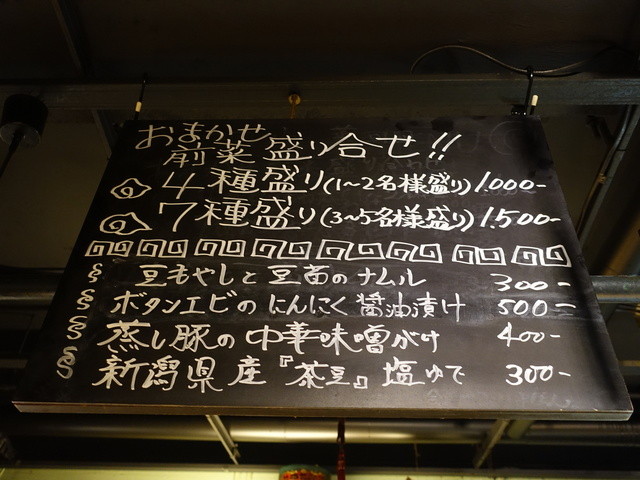 おまかせ
前菜盛り合せ!!
4種盛り(1~2名様盛り)1.000-
7種盛り(3~5名様盛り)1.500-
豆もやしと豆苗のナムル 300-
ボタンエビのにんにく醤油漬け 500-
蒸し豚の中華味噌がけ 400-
新潟県産『茶豆』塩ゆで 300-